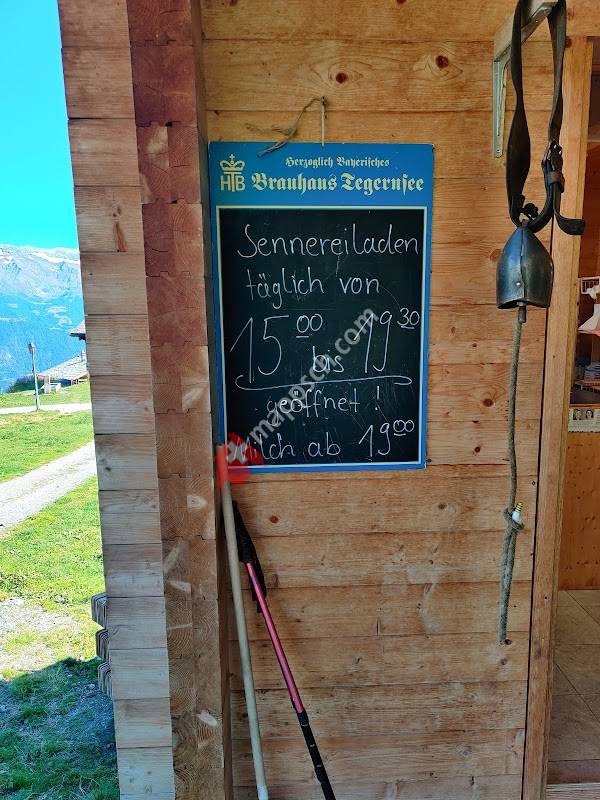 HTB
Herzoglich Bayerisches
Brauhaus Tegernsee
Sennereiladen
täglich von
15⁰⁰ bis 19³⁰
geöffnet!
Milch ab 19⁰⁰
mapposch.com